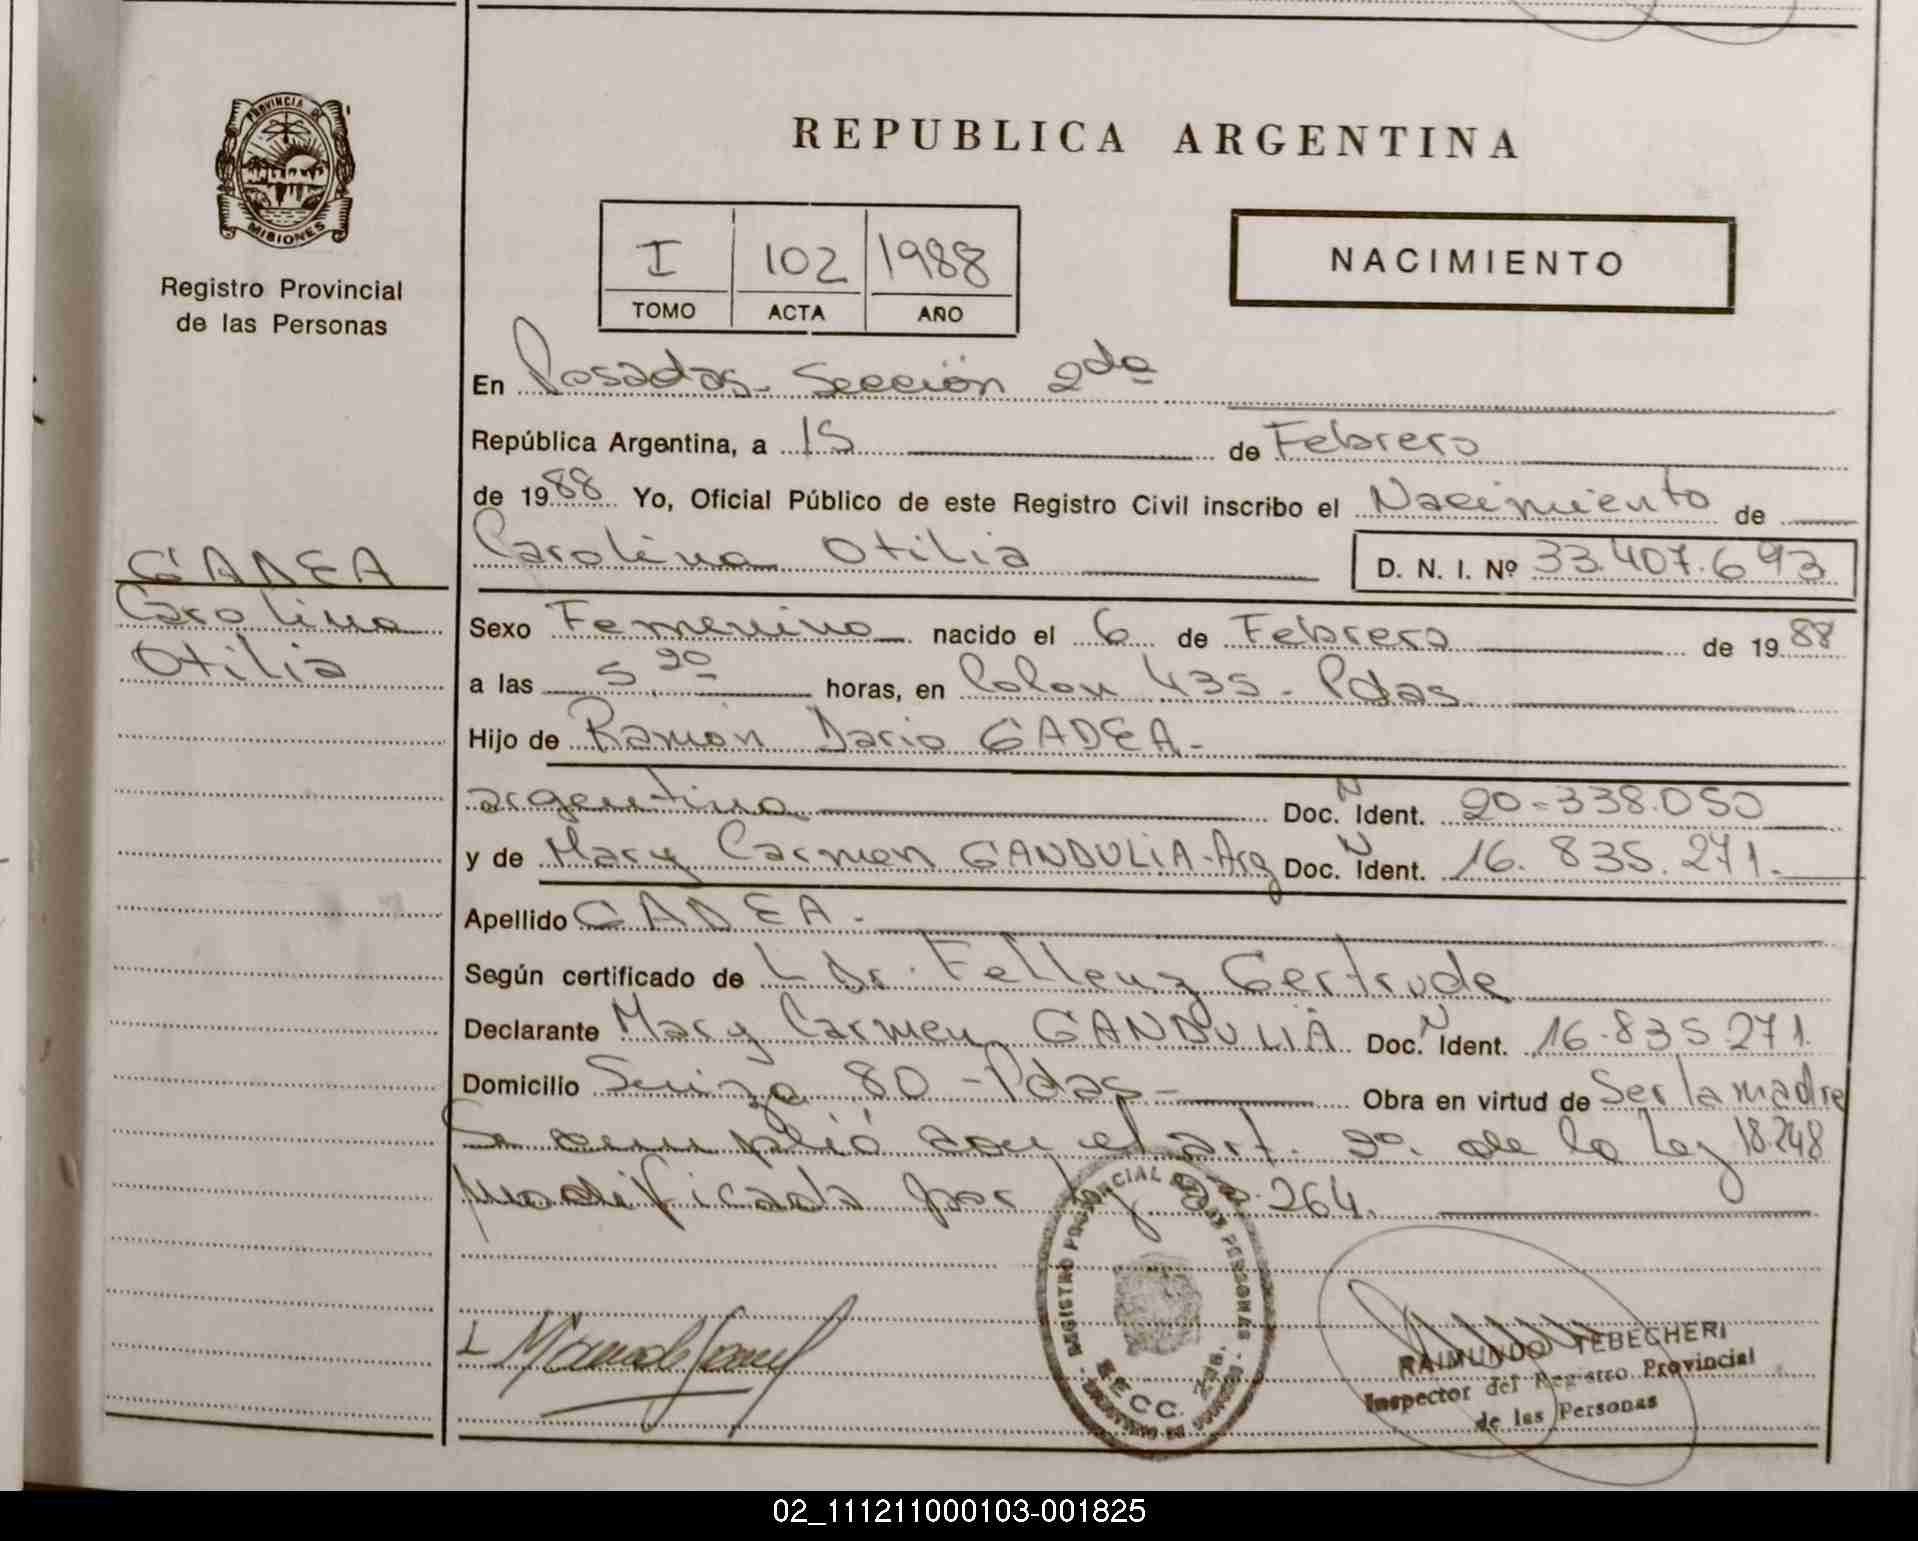 PROVINCIA DE
MISIONES
Registro Provincial
de las Personas
REPUBLICA ARGENTINA
I 102 1988
TOMO ACTA AÑO
NACIMIENTO
En Posadas - Sección 2da
República Argentina, a 15 de Febrero
de 1988 Yo, Oficial Público de este Registro Civil inscribo el Nacimiento de
Carolina Otilia D. N. I. Nº 33.407.693
GADEA
Carolina
Otilia
Sexo Femenino nacido el 6 de Febrero de 1988
a las 5,20 horas, en Colon 435 - Pdas
Hijo de Ramón Dario GADEA -
argentino Doc. N Ident. 20-338.050
y de Mary Carmen GANDULIA - Arg Doc. N Ident. 16.835.271.
Apellido GADEA -
Según certificado de L Dr. Fellenz Gertrude
Declarante Mary Carmen GANDULIA Doc. N Ident. 16.835.271.
Domicilio Suiza 80 - Pdas - Obra en virtud de Ser la madre
Se cumplió con el art. 2º de la Ley 18.248
modificada por Ley 264.
REGISTRO PROVINCIAL DE LAS PERSONAS
SECC. 2da.
RAIMUNDO TEBECHERI
Inspector del Registro Provincial
de las Personas
02_111211000103-001825